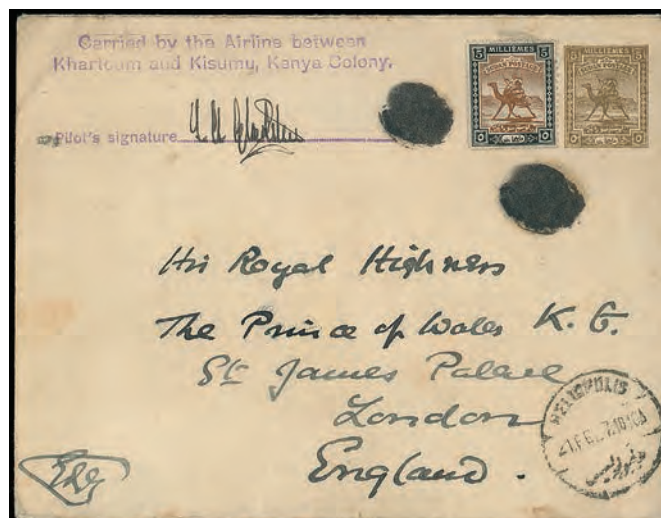 Carried by the Airline between
Khartoum and Kisumu, Kenya Colony.
Pilot's signature
5 MILLIEMES 5
SUDAN POSTAGE
5 MILLIEMES 5
SUDAN POSTAGE
His Royal Highness
The Prince of Wales K. G.
St James Palace
London
England.
HELIOPOLIS